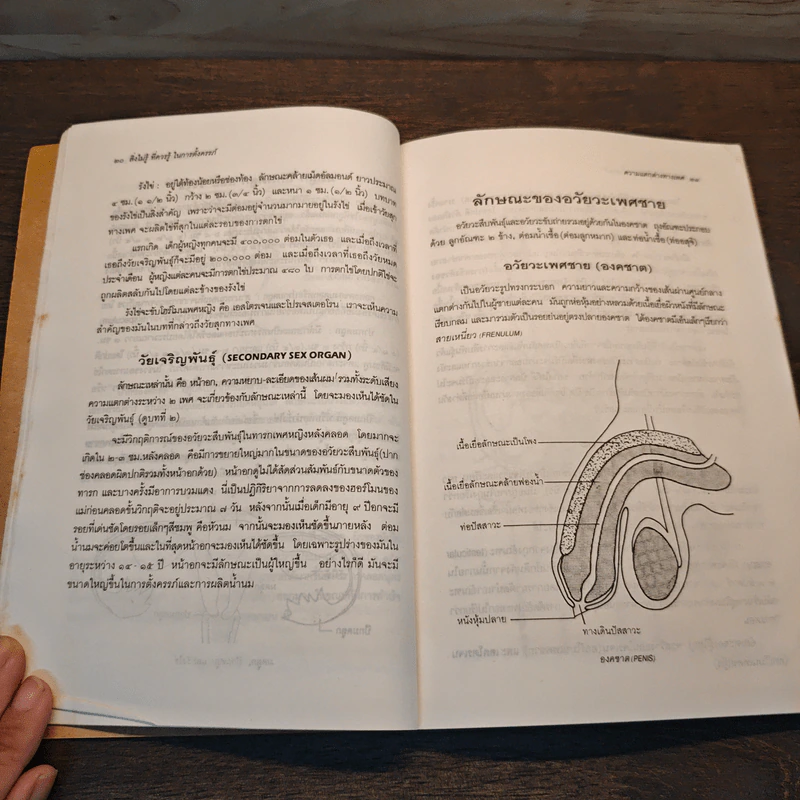 ๒๐ สิ่งไม่รู้ ที่ควรรู้ ในการตั้งครรภ์
รังไข่ : อยู่ใต้ท้องน้อยหรือช่องท้อง ลักษณะคล้ายเม็ดอัลมอนด์ ยาวประมาณ
๔ ซม. (๑ ๑/๒ นิ้ว) กว้าง ๒ ซม. (๓/๔ นิ้ว) และหนา ๑ ซม. (๑/๒ นิ้ว) บทบาท
ของรังไข่เป็นสิ่งสำคัญ เพราะว่าจะมีต่อมอยู่จำนวนมากมายอยู่ในรังไข่ เมื่อเข้าวัยสุก
ทางเพศ จะผลิตไข่ที่สุกในแต่ละรอบของการตกไข่
แรกเกิด เด็กผู้หญิงทุกคนจะมี ๔๐๐,๐๐๐ ต่อมในตัวเธอ และเมื่อถึงเวลาที่
เธอถึงวัยเจริญพันธุ์ก็จะมีอยู่ ๒๐๐,๐๐๐ ต่อม และเมื่อถึงเวลาที่เธอถึงวัยหมด
ประจำเดือน ผู้หญิงแต่ละคนจะมีการตกไข่ประมาณ ๔๘๐ ใบ การตกไข่โดยปกติไข่จะ
ถูกผลิตสลับกันไปโดยแต่ละข้างของรังไข่
รังไข่จะขับฮอร์โมนเพศหญิง คือ เอสโตรเจนและโปรเจสเตอโรน เราจะเห็นความ
สำคัญของมันในบทที่กล่าวถึงวัยสุกทางเพศ
วัยเจริญพันธุ์ (SECONDARY SEX ORGAN)
ลักษณะเหล่านั้น คือ หน้าอก, ความหยาบ-ละเอียดของเส้นผม รวมทั้งระดับเสียง
ความแตกต่างระหว่าง ๒ เพศ จะเกี่ยวข้องกับลักษณะเหล่านี้ โดยจะมองเห็นได้ชัดใน
วัยเจริญพันธุ์ (ดูบทที่ ๒)
จะมีวิกฤติการณ์ของอวัยวะสืบพันธุ์ในทารกเพศหญิงหลังคลอด โดยมากจะ
เกิดใน ๒-๓ ชม.หลังคลอด คือมีการขยายใหญ่มากในขนาดของอวัยวะสืบพันธุ์(ปาก
ช่องคลอดผิดปกติรวมทั้งหน้าอกด้วย) หน้าอกดูไม่ได้สัดส่วนสัมพันธ์กับขนาดตัวของ
ทารก และบางครั้งมีอาการบวมแดง นี่เป็นปฏิกิริยาจากการลดลงของฮอร์โมนของ
แม่ก่อนคลอดขั้นวิกฤติจะอยู่ประมาณ ๗ วัน หลังจากนั้นเมื่อเด็กมีอายุ ๙ ปีอกจะมี
รอยที่เด่นชัดโดยรอยเล็กๆสีชมพู คือหัวนม จากนั้นจะมองเห็นชัดขึ้นภายหลัง ต่อม
น้ำนมจะค่อยโตขึ้นและในที่สุดหน้าอกจะมองเห็นได้ชัดขึ้น โดยเฉพาะรูปร่างของมันใน
อายุระหว่าง ๑๔ - ๑๕ ปี หน้าอกจะมีลักษณะเป็นผู้ใหญ่ขึ้น อย่างไรก็ดี มันจะมี
ขนาดใหญ่ขึ้นในการตั้งครรภ์และการผลิตน้ำนม
ความแตกต่างทางเพศ
ลักษณะของอวัยวะเพศชาย
อวัยวะสืบพันธุ์และอวัยวะขับถ่ายรวมอยู่ด้วยกันในองคชาต ถุงอัณฑะประกอบ
ด้วย ลูกอัณฑะ ๒ ข้าง, ต่อมน้ำเชื้อ (ต่อมลูกหมาก) และท่อน้ำเชื้อ (ท่ออสุจิ)
อวัยวะเพศชาย (องคชาต)
เป็นอวัยวะรูปทรงกระบอก ความยาวและความกว้างของเส้นผ่านศูนย์กลาง
แตกต่างกันไปในผู้ชายแต่ละคน มันถูกห่อหุ้มอย่างหลวมด้วยเนื้อเยื่อผิวหนังที่มีลักษณะ
เรียบกลม และมารวมตัวเป็นรอยย่นอยู่ตรงปลายองคชาต ใต้องคชาตมีเอ็นเล็กๆเรียกว่า
สายเหนี่ยว (FRENULUM)
เนื้อเยื่อลักษณะเป็นโพง
เนื้อเยื่อลักษณะคล้ายฟองน้ำ
ท่อปัสสาวะ
หนังหุ้มปลาย
ทางเดินปัสสาวะ
องคชาต (PENIS)